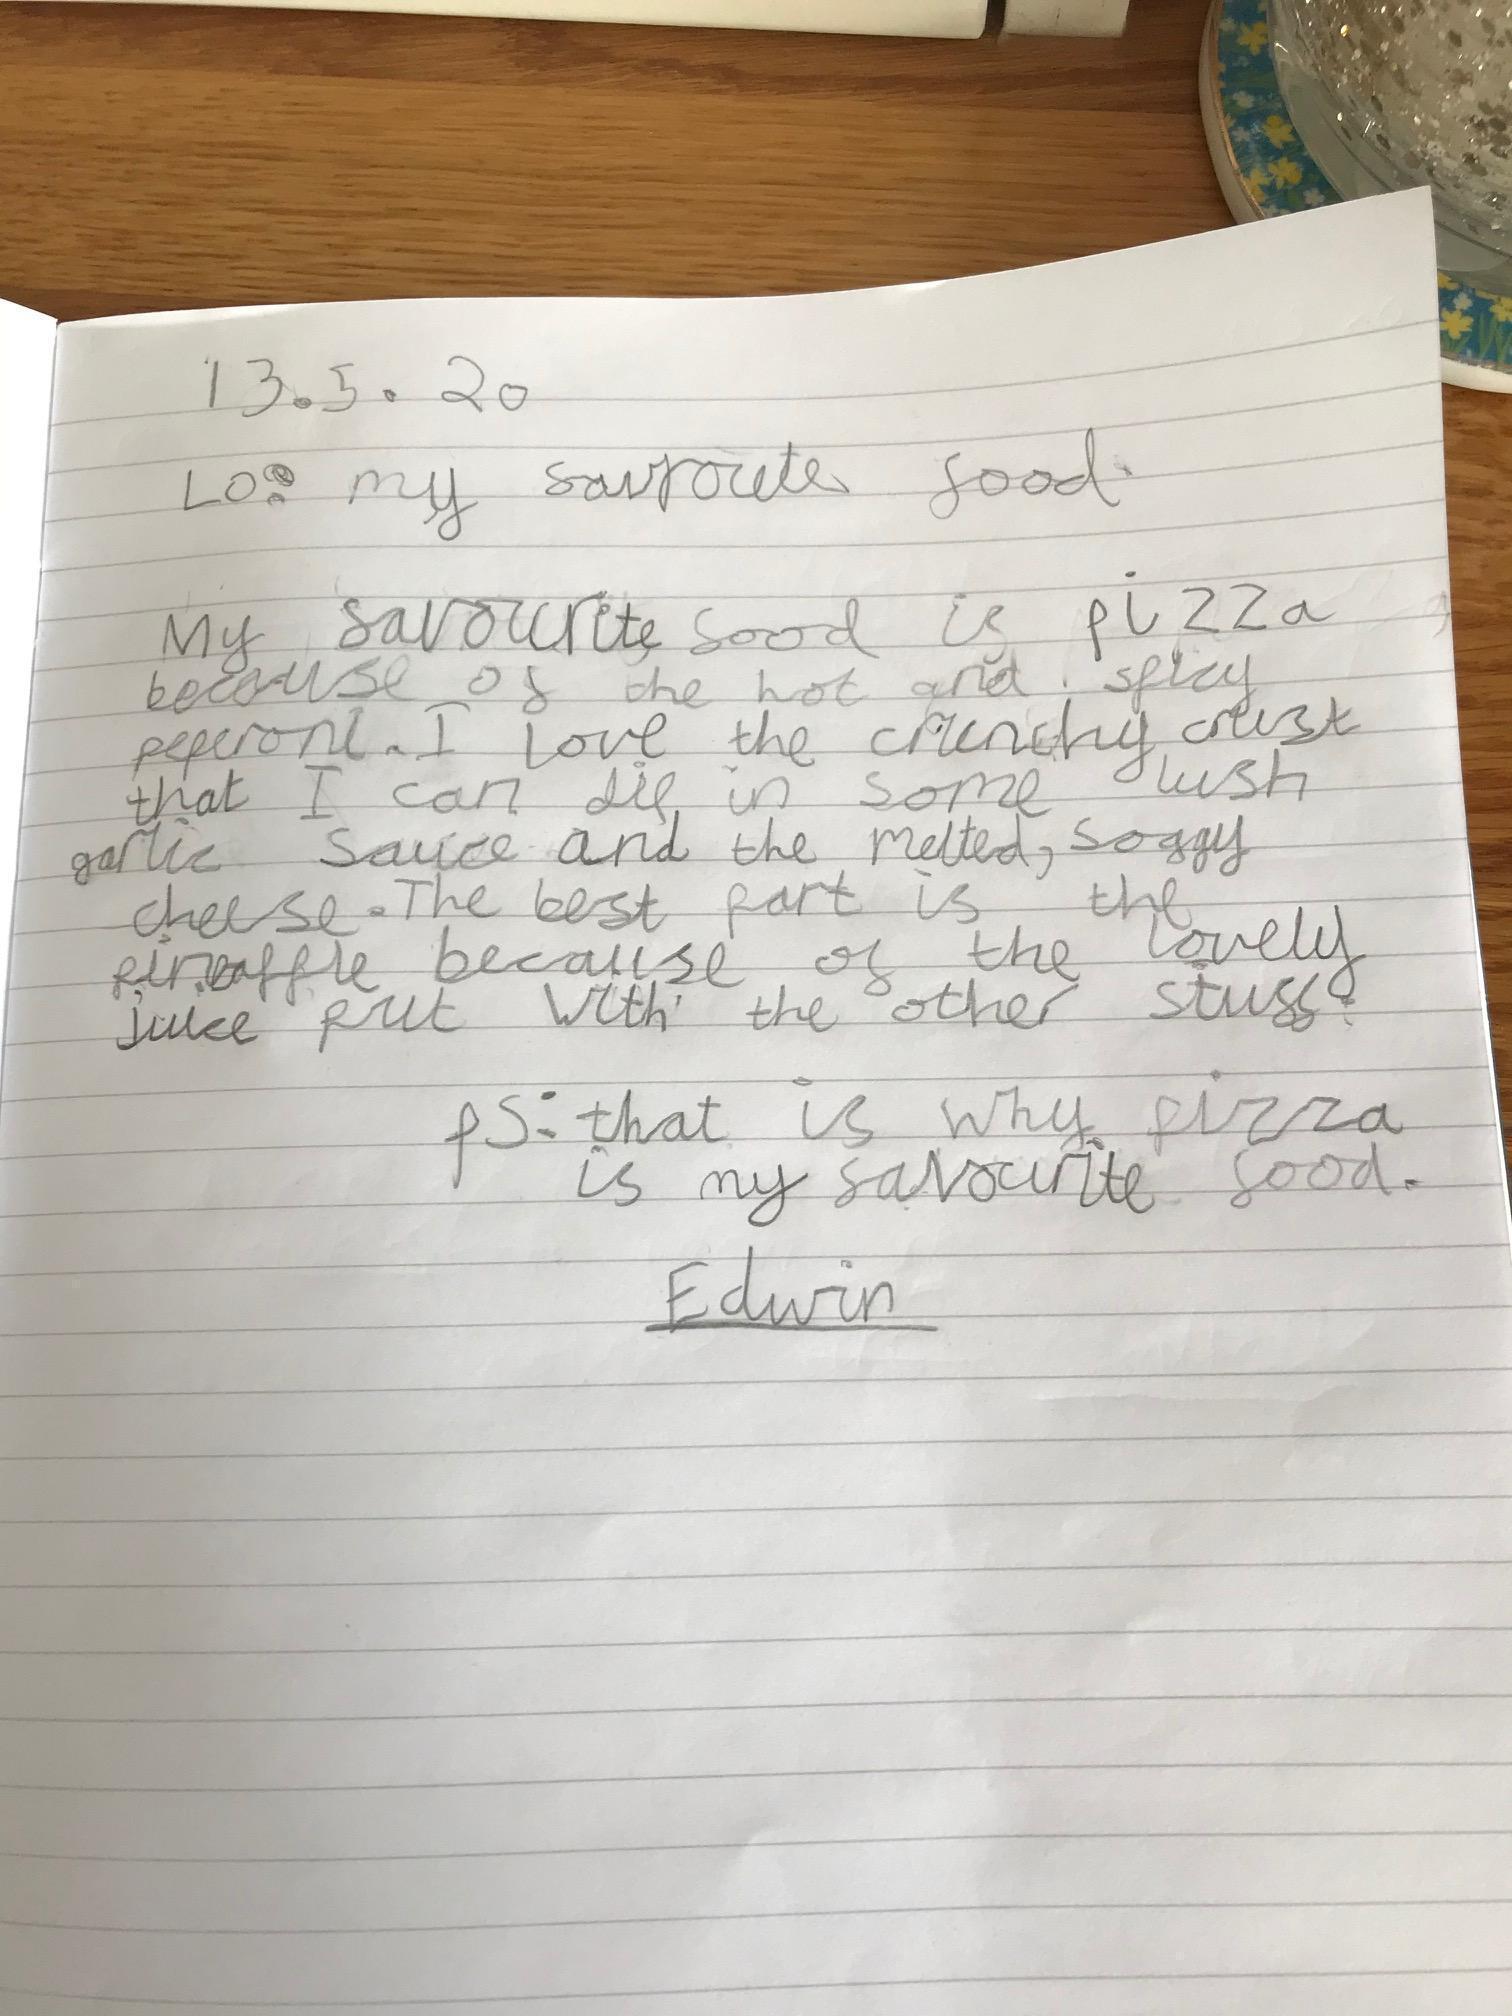 13.5.20
LO: my favroute food.
My favourite food is pizza
because of the hot and spicy
peperoni. I love the crunchy crust
that I can dip in some lush
garlic sauce and the melted, soggy
cheese. The best part is the
pineapple because of the lovely
juice put with the other stuff!
pS: that is why pizza
is my favourite food.
Edwin